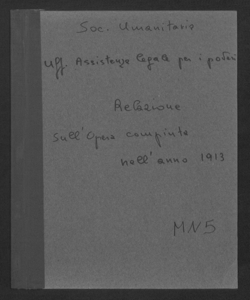 Soc. Umanitaria
Uff. Assistenza legale per i poveri
Relazione
sull'opera compiuta
nell'anno 1913
MN5